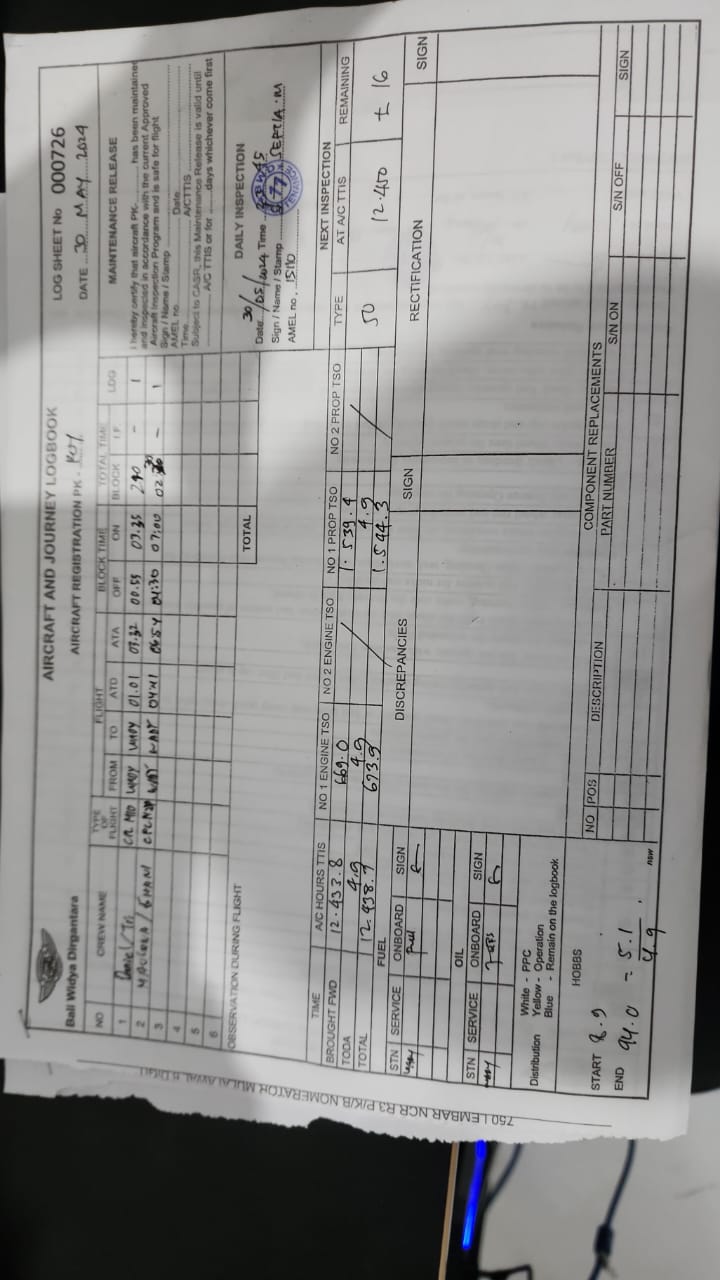 Bali Widya Dirgantara
AIRCRAFT AND JOURNEY LOGBOOK
AIRCRAFT REGISTRATION PK -
LOG SHEET No 000726
DATE 30 MAY 2024
NO CREW NAME TYPE OF FLIGHT FLIGHT BLOCK TIME TOTAL TIME LDG
FROM TO ATD ATA OFF ON BLOCK I.F
1 Daniel / Tri 01.01 03.32 00.55 03.35 2.40 - 1
2 04:41 06:54 04:30 07:00 - 1
3
4
5
6
OBSERVATION DURING FLIGHT
TOTAL
MAINTENANCE RELEASE
I hereby certify that aircraft PK-............ has been maintained
and inspected in accordance with the current Approved
Aircraft Inspection Program and is safe for flight
Sign / Name / Stamp
AMEL no. Date
Time A/CTTIS
Subject to CASR, this Maintenance Release is valid until
A/C TTIS or for ........days whichever come first
DAILY INSPECTION
Date 30/05/2024 Time
Sign / Name / Stamp SEPTIA.M
AMEL no.
TIME A/C HOURS TTIS NO 1 ENGINE TSO NO 2 ENGINE TSO NO 1 PROP TSO NO 2 PROP TSO
BROUGHT FWD 12.433.8 669.0 1.539.4
TODA 4.9 4.9 4.9
TOTAL 12.438.7 673.9 1.544.3
NEXT INSPECTION
TYPE AT A/C TTIS REMAINING
50 12.450 ± 16
FUEL
STN SERVICE ONBOARD SIGN
Full
OIL
STN SERVICE ONBOARD SIGN
DISCREPANCIES SIGN RECTIFICATION SIGN
Distribution White - PPC
Yellow - Operation
Blue - Remain on the logbook
HOBBS
START 8.9
END 94.0 = 5.1
4.9
new
COMPONENT REPLACEMENTS
NO POS DESCRIPTION PART NUMBER S/N ON S/N OFF SIGN
750 LEMBAR NCR R3 P/K/B NOMERATOR MULAI AWAL 6 DIGIT